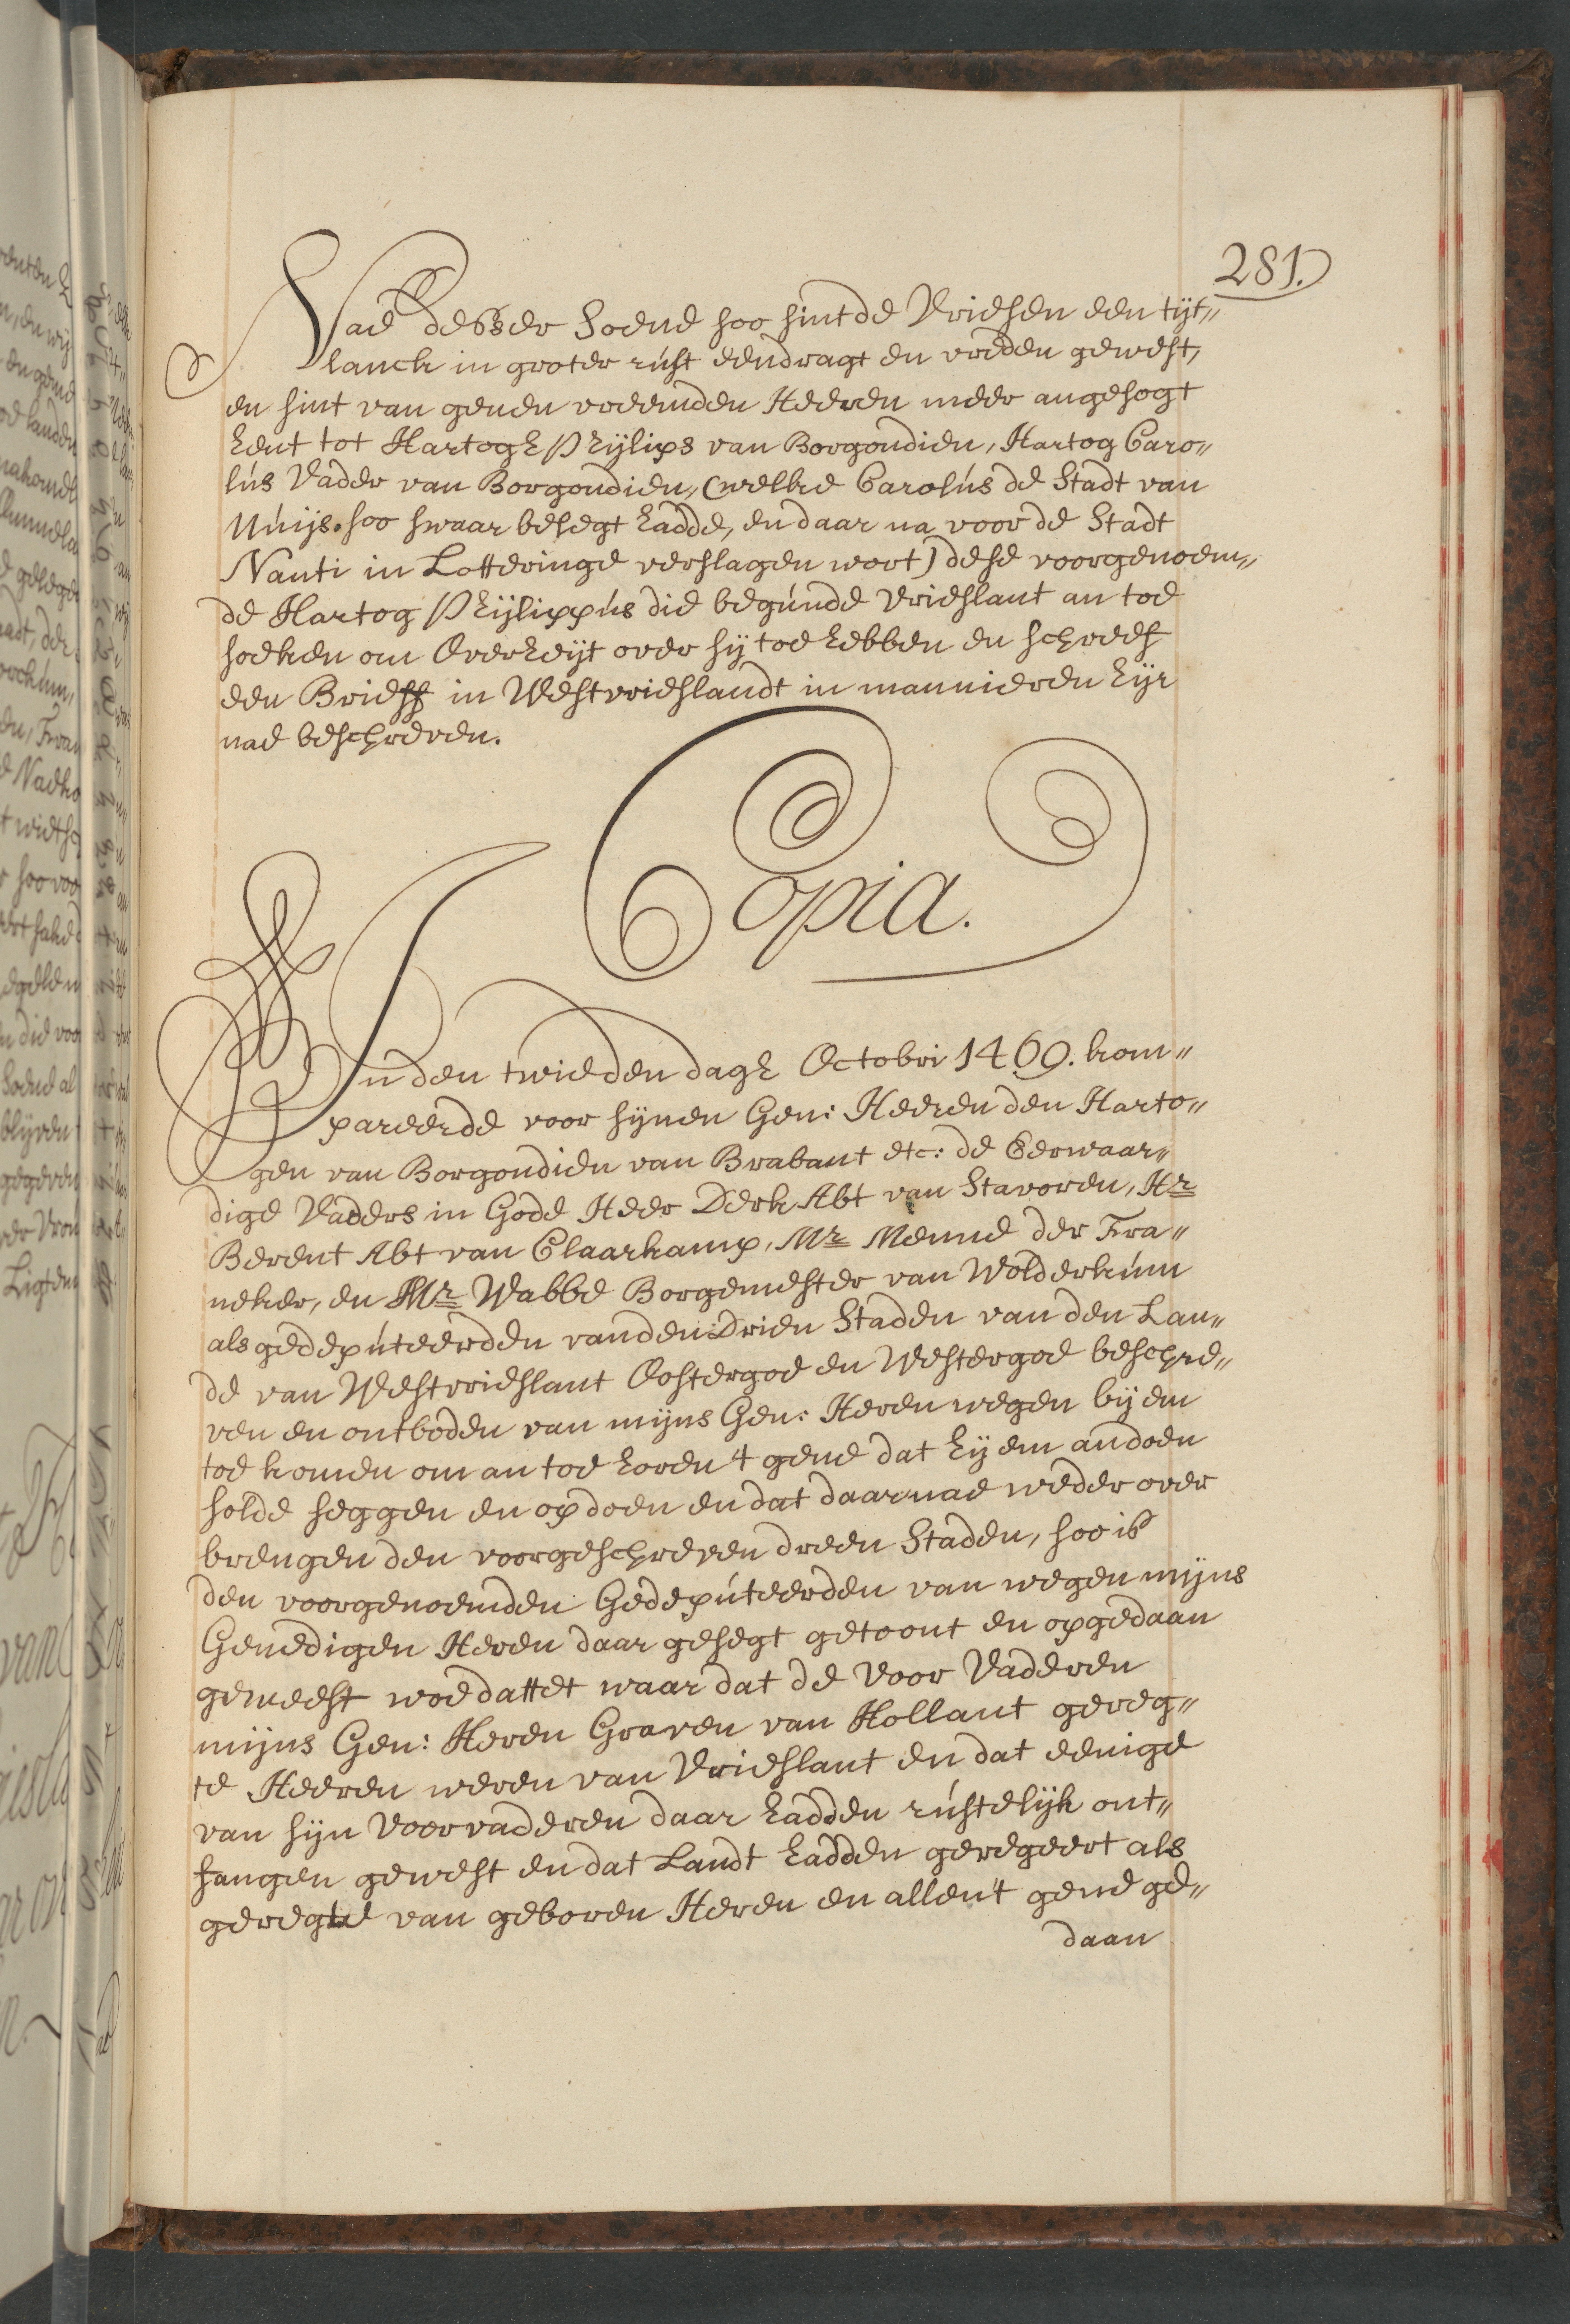 281.
Nae desser Soene soo sint de Vriesen een tijt„
lanck in groter rúst eendragt en vreden gewest,
en sint van genen vreemden Heeren meer angesogt
hent tot Hartogh Phijlips van Borgondien, Hartog Caro„
lús Vader van Borgondien, (welke Carolús de Stadt van
Núijs. soo swaar besegt hadde, en daar na voor de Stadt
Nanti in Lotteringe verslagen wort) dese voorgenoem„
de Hartog Phijlippús die begúnde Vrieslant an toe
soeken om Overheijt over sij toe hebben en schreef
een Brieff in Westvrieslandt in mannieren hijr
nae beschreven.
Copia.
In den twieden dagh Octobri 1469. kom„
pareerde voor sijnen Gen: Heeren den Harto„
gen van Borgondien van Brabant etc: de Eerwaar„
dige Vaders in Gode Heer Derk Abt van Stavoren, Hr
Berent Abt van Claarkamp, Mr Menne der Fra„
neker, en Mr Wabbe Borgemester van Wolderkúm
als gedepúteerden van den Drien Staden van den Lan„
de van Westvrieslant Oostergoe en Westergoe beschre„
ven en ontboden van mijns Gen: Heren wegen bij em
toe komen om an toe horen 't gene dat hij em andoen
solde seggen en opdoen en dat daarnae weder over
brengen den voorgeschreven dreen Staden, soo is
den voorgenoemden Gedepúteerden van wegen mijns
Genedigen Heren daar gesegt getoont en opgedaan
gemeest woe dattet waar dat de Voor Vaderen
mijns Gen: Heren Graven van Hollant gereg„
te Heeren weren van Vrieslant en dat eenige
van sijn Voorvaderen daar hadden rústelijk ont„
fangen gewest en dat Landt hadden geregeert als
geregte van geboren Heren en allent gene ge„
daan